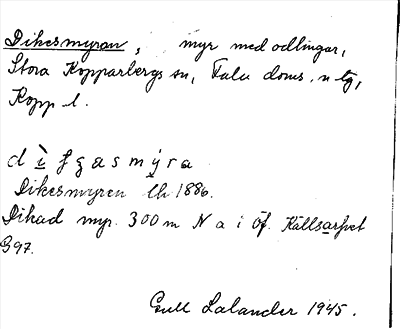 Dikesmyran, myr med odlingar,
Stora Kopparbergs sn, Falu doms. n tg,
Kopp l.
d ì f g a s m ý r a
Dikesmyren Ek 1886.
Dikad myr. 300 m N a i Öf. Källsarfvet
G97.
Gull Lalander 1945.